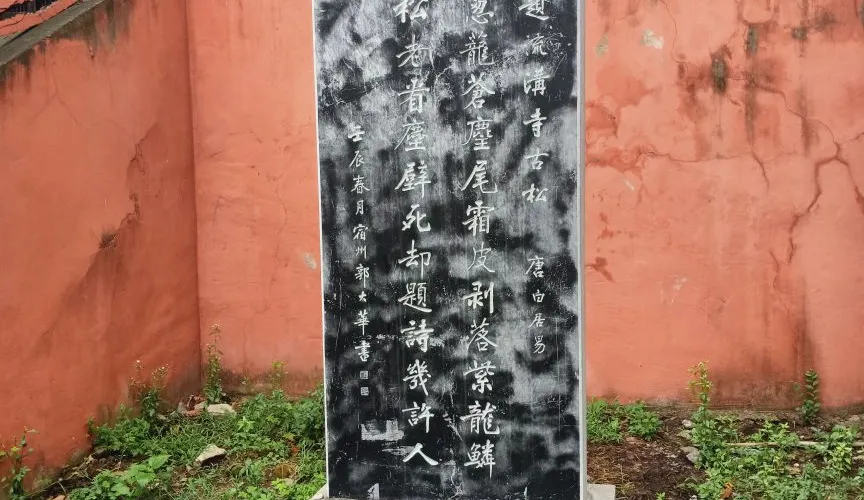 題流溝寺古松 唐 白居易
葱蘢蒼麈尾霜皮剥落紫龍鱗
松老看塵壁死却題詩幾許人
壬辰春月宿州郭大華書